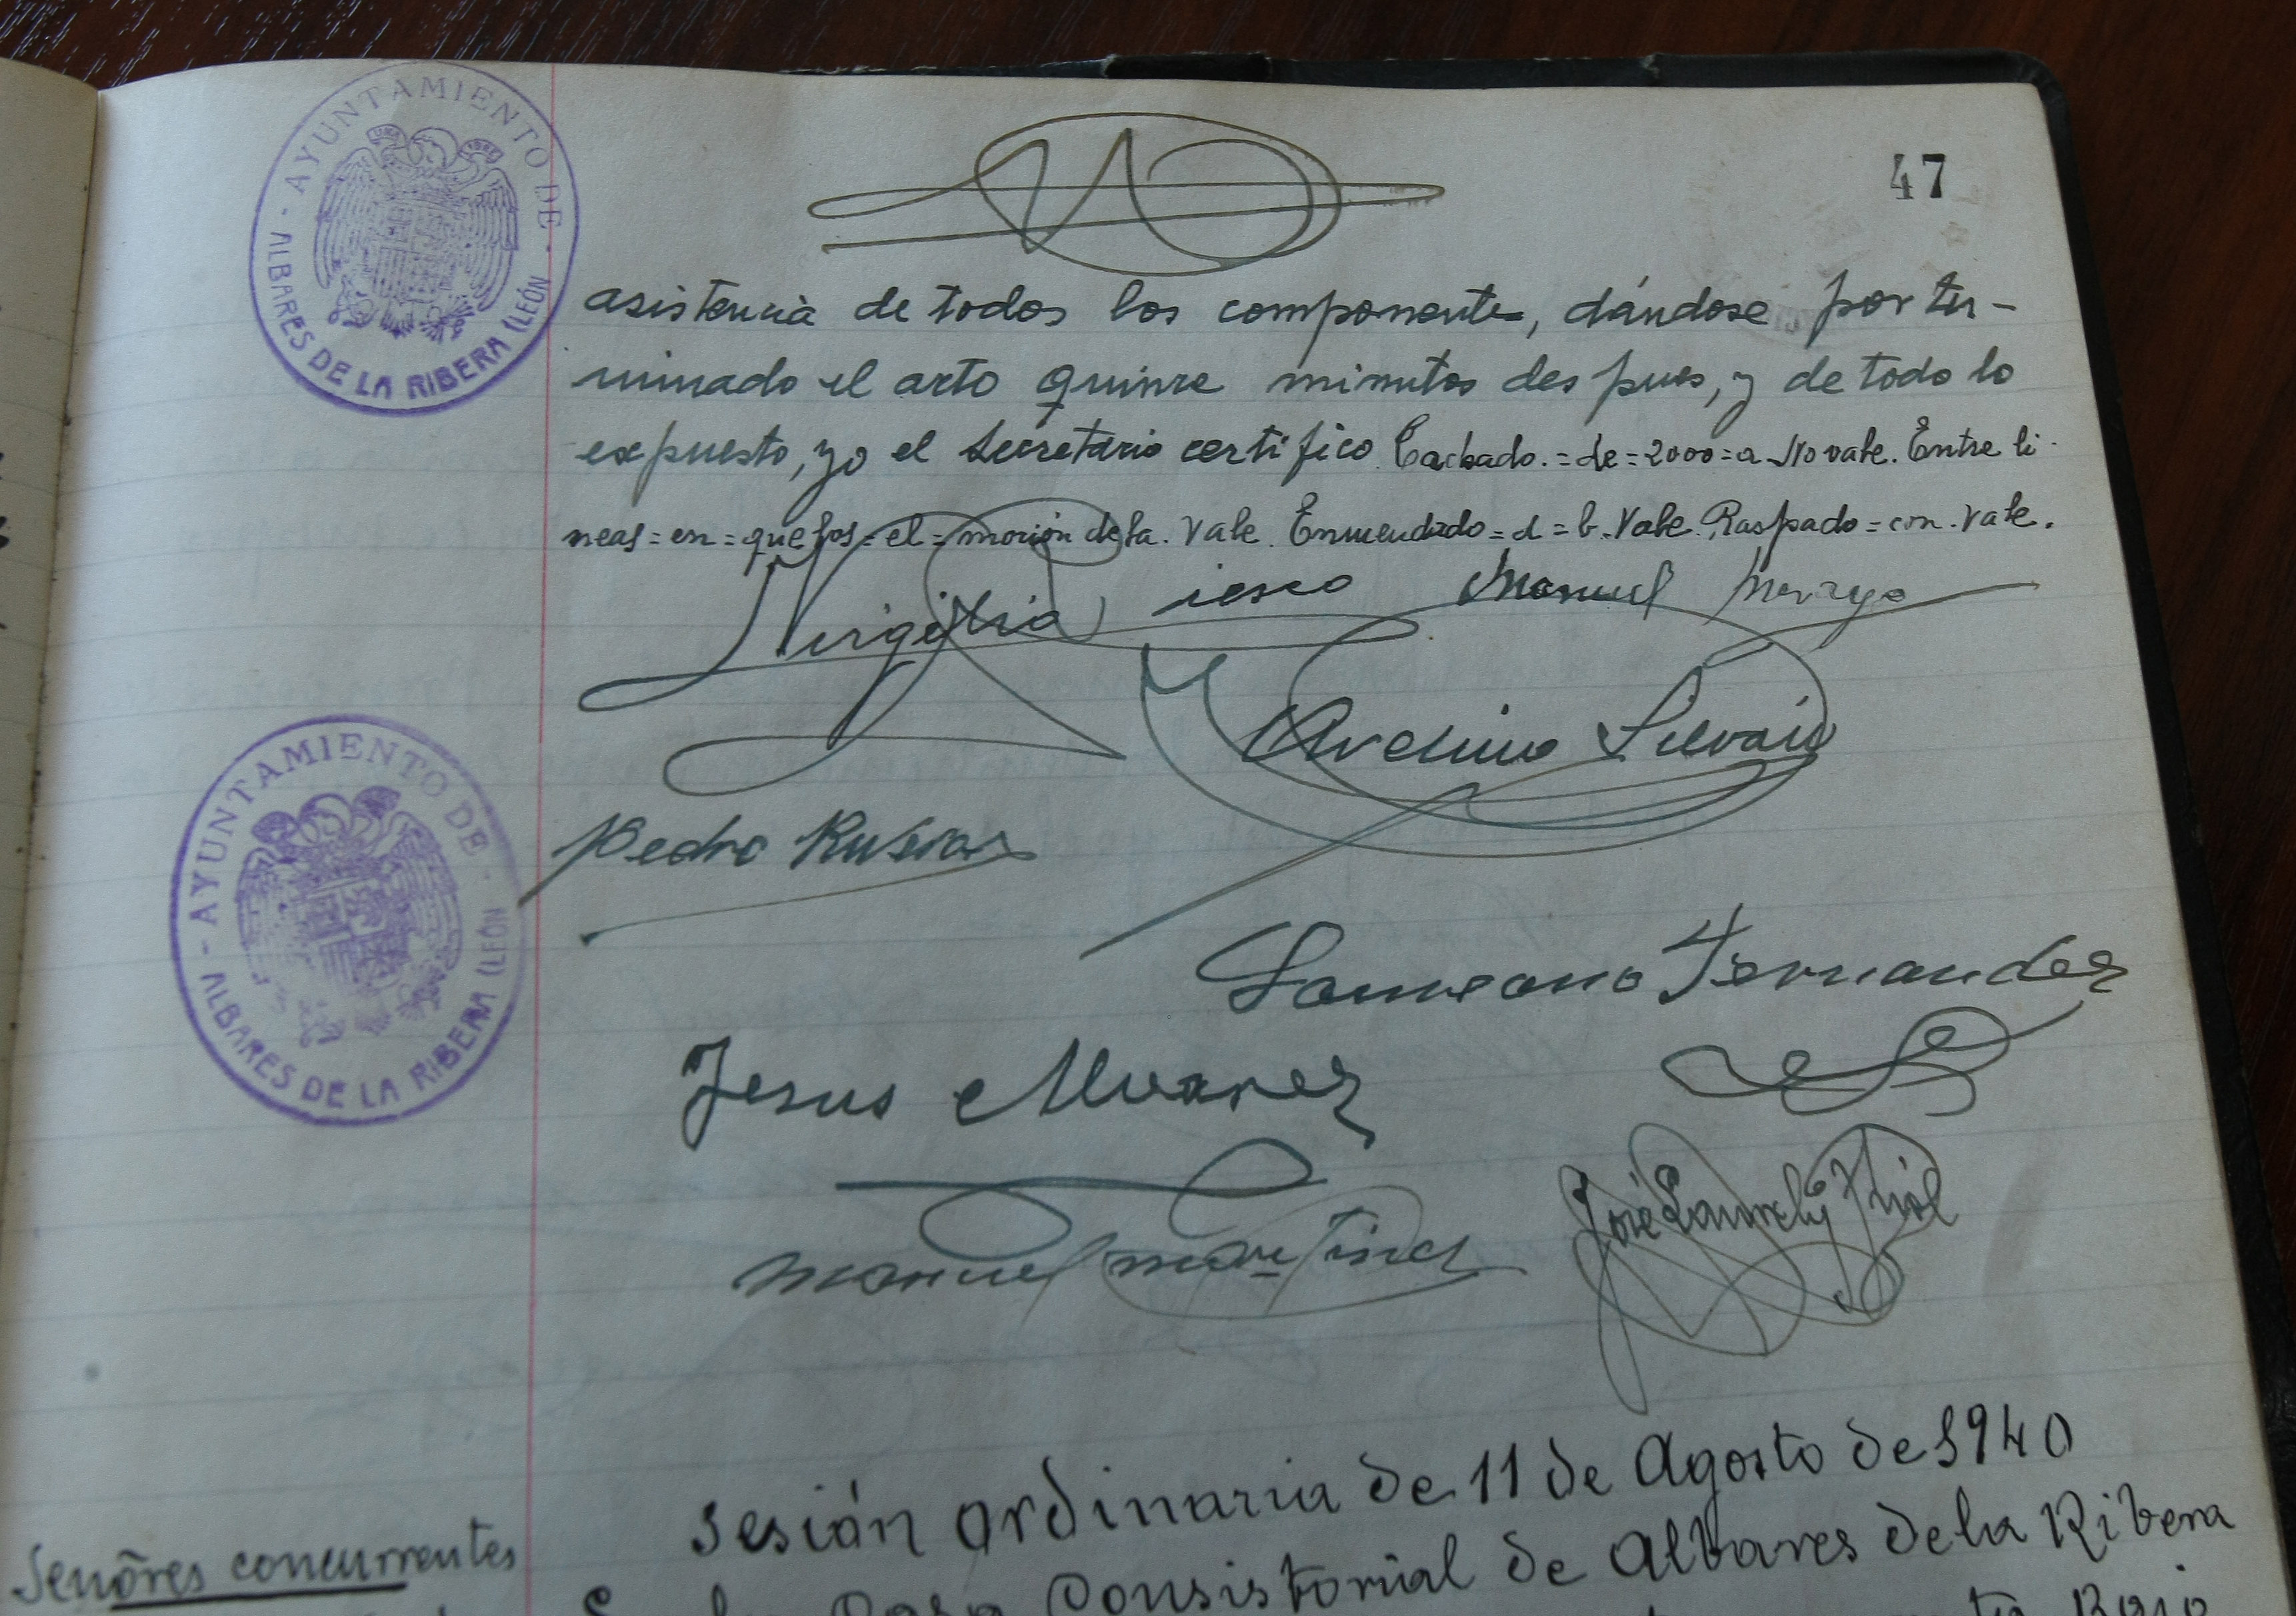 47
- AYUNTAMIENTO DE -
ALBARES DE LA RIBERA (LEÓN
asistencia de todos los componentes, dándose por ter-
minado el acto quince minutos despues, y de todo lo
expuesto, yo el Secretario certifico. Tachado.=de=2000=a No vale. Entre li-
neas=en=que los=el=moción de la. Vale. Enmendado=d=b. Vale. Raspado=con. Vale.
Virgilio Manuel
Avelino Silván
Pedro
- AYUNTAMIENTO DE -
ALBARES DE LA RIBERA (LEÓN
Laureano Fernandez
Jesus Alvarez
Manuel Martinez
José
Sesión ordinaria de 11 de Agosto de 1940
Señores concurrentes
Casa Consistorial de Albares de la Ribera